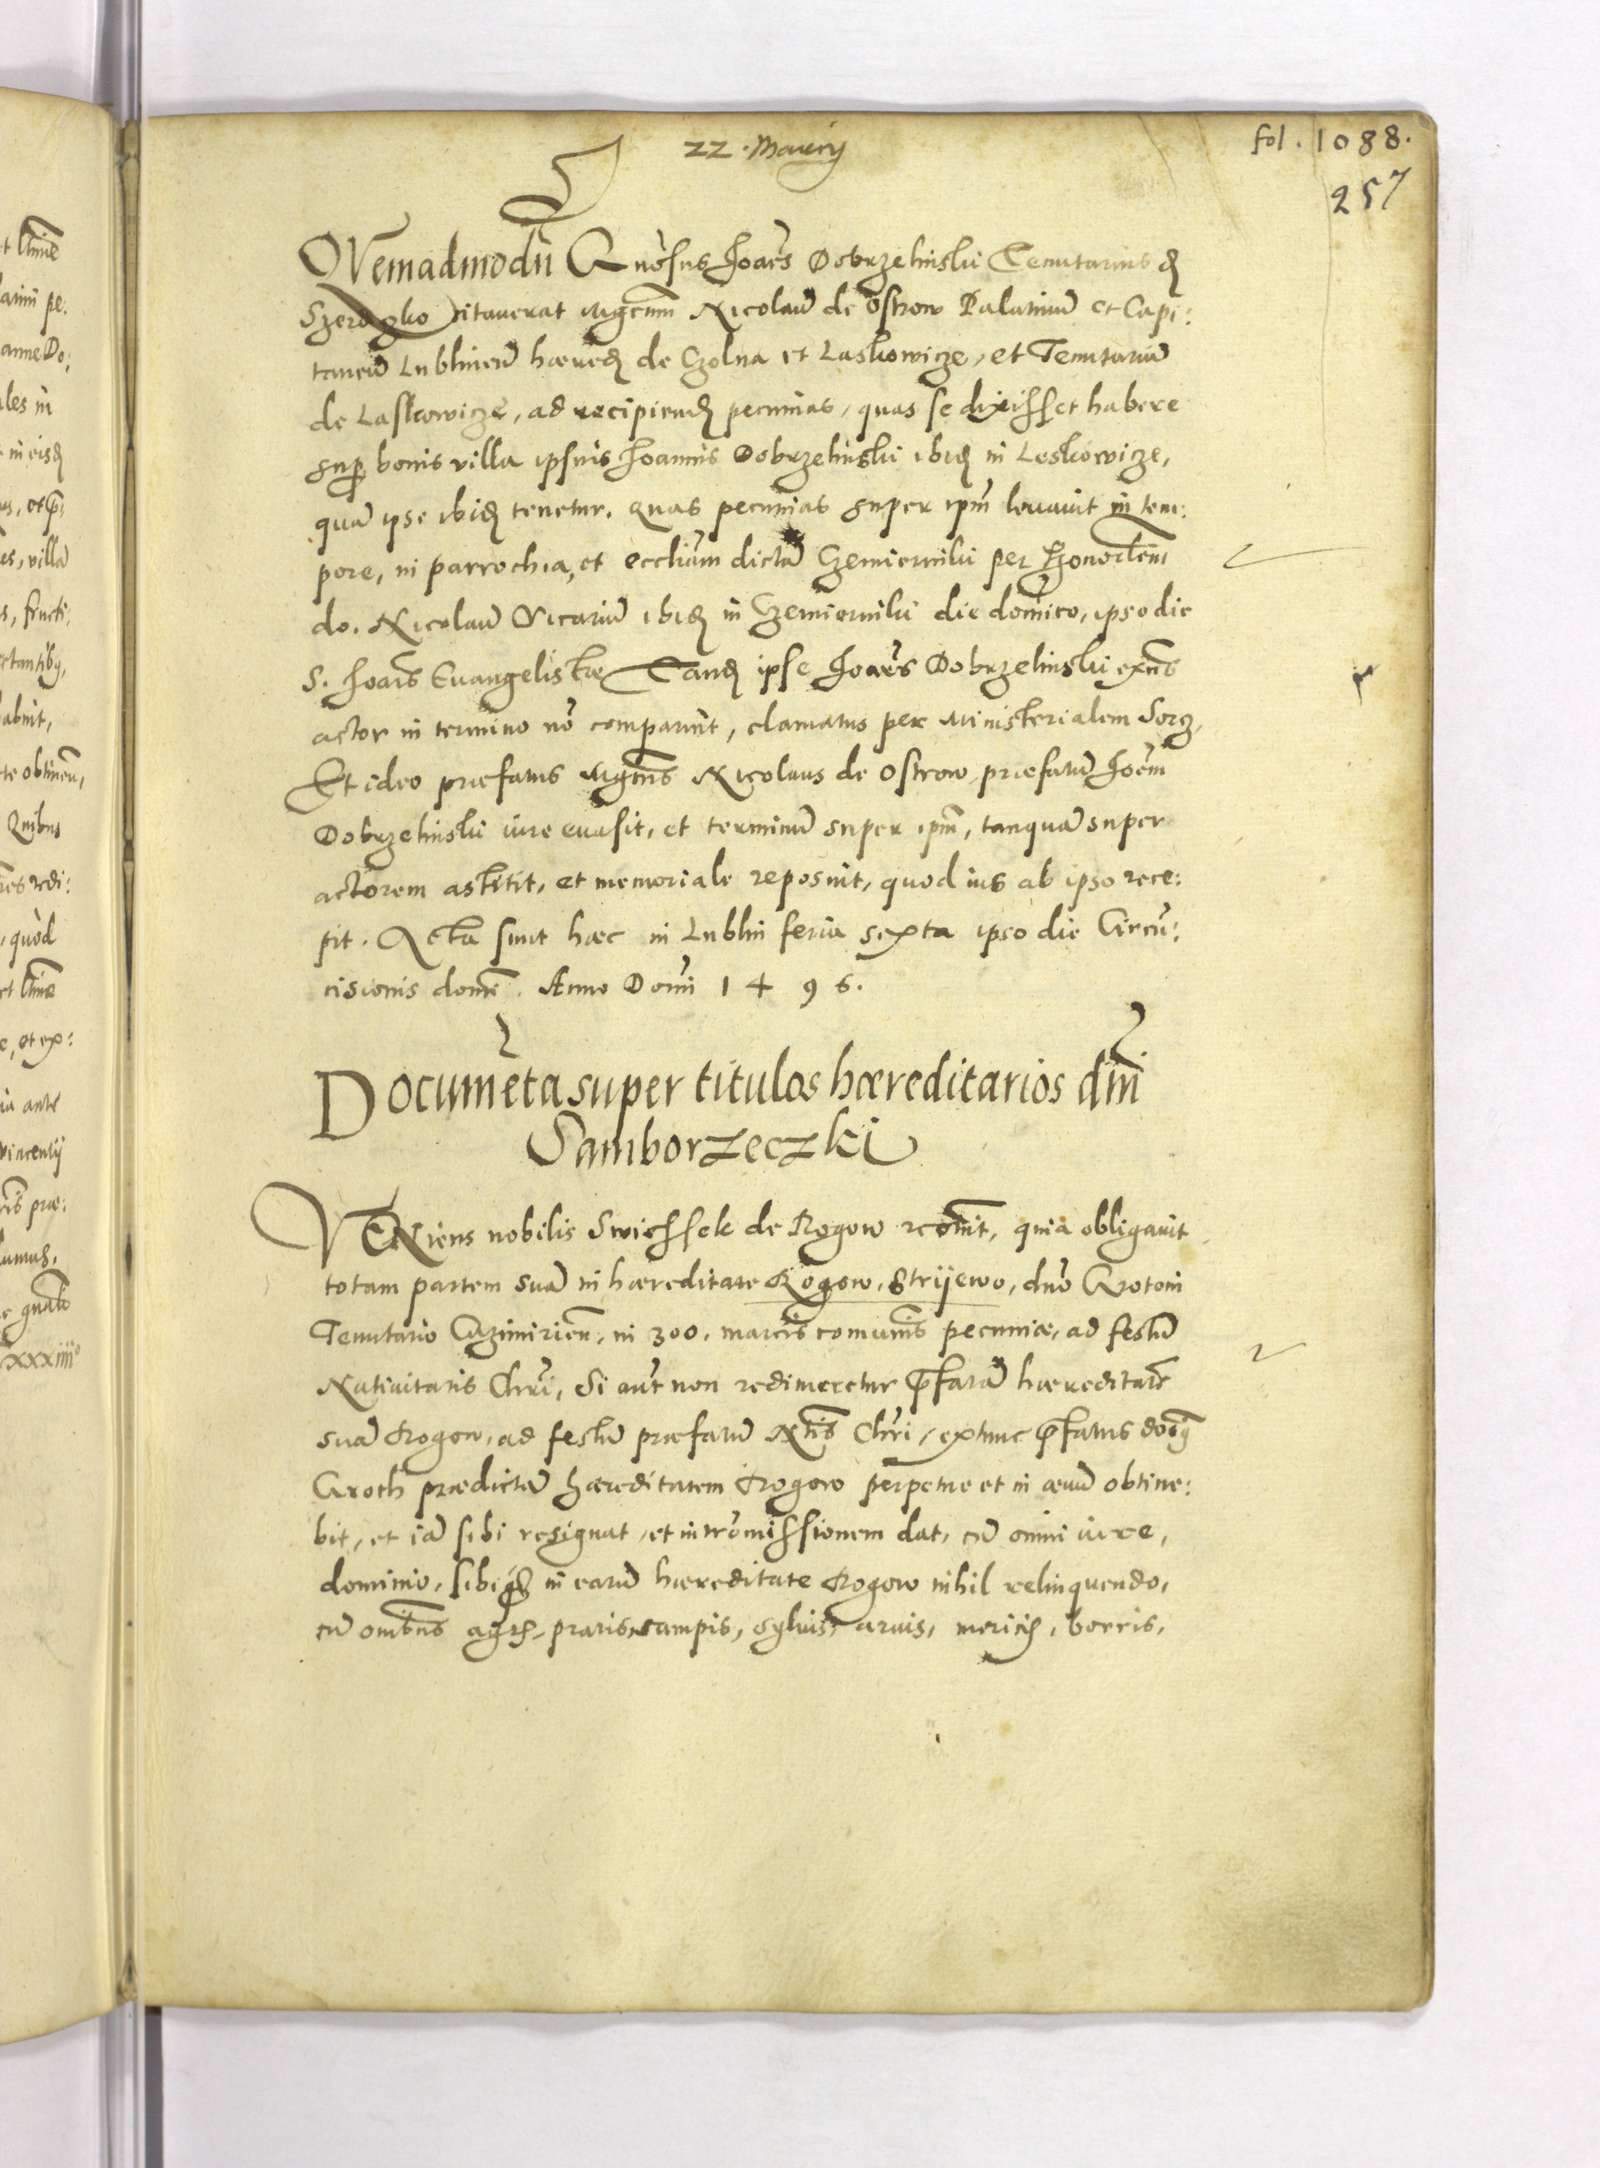 22. Marcij
fol. 1088.
257
QVemadmodũ Gñosus Joañs Dobrzelinski Tenutarius d
Szeroczko citauerat Mgcum Nicolaũ de Ostrow Palatinũ et Capi:
taneũ Lublineñ hæred de Czolna et Laskowicze, et Tenutariũ
de Laskowicze, ad recipiend pecunias, quas se dixisset habere
sup bonis villa ipsius Joannis Dobrzelinski ibid in Leskowicze,
quã ipse ibid tenetur. Quas pecunias super ipm leuauit in tem:
pore, in parrochia, et eccliam dictã Czemierniki per Honorlem
do. Nicolaũ Vicariũ ibid in Czemierniki die domico, ipso die
S. Joañs Euangelistæ Tand ipse Joañs Dobrzelinski exñs
actor in termino nõ comparuit, clamatus per Ministerialem Sorcz,
Et ideo præfatus Mgcus Nicolaus de Ostrow præfatũ Joem
Dobrzelinski iure euasit, et terminũ super ipm, tanquã super
actorem astitit, et memoriale reposuit, quod ius ab ipso rece:
pit. Acta sunt hæc in Lublin feria sexta ipso die Circũ:
cisionis domcæ. Anno Domi 1496.
Documẽta super titulos hæreditarios dm̃i
Samborzeczki
VENiens nobilis Swiessek de Rogow recoñit, quia obligauit
totam partem suã in hæreditate Rogow, Strijewo, dño Grotoni
Tenutario Cazimirieñ, in 300. marcis comunis pecuniæ, ad festũ
Natiuitatis Chri, Si aut non redimeretur pfatã hæreditatẽ
suã Rogow, ad festũ præfatũ Ntis Chri, extunc pfatus dos
Groth prædictã hæreditatem Rogow perpetue et in æuũ obtine:
bit, et iã sibi resignat, et intromissionem dat, cũ omni iure,
dominio, sibi in earũ hæreditate Rogow nihil relinquendo,
cũ omibus agris, pratis, campis, syluis, aruis, mericis, borris,